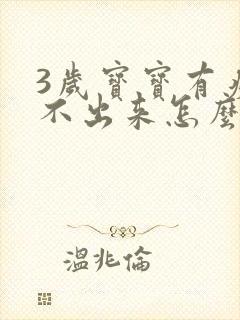 3歲寶寶有
不出来怎麼
溫兆倫